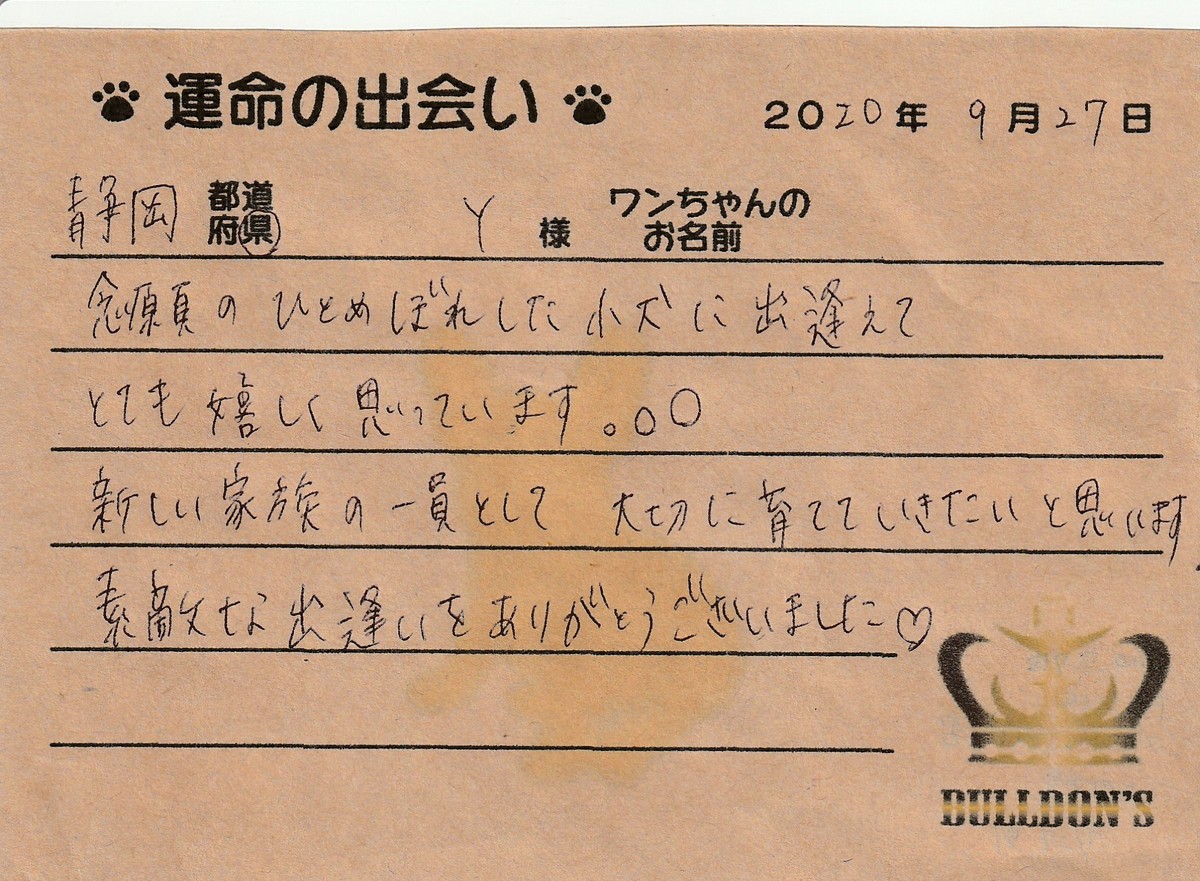 運命の出会い 2020年 9月27日
静岡 都道府県 Y 様 ワンちゃんのお名前
念願のひとめぼれした小犬に出逢えて
とても嬉しく思っています。○○
新しい家族の一員として 大切に育てていきたいと思います
素敵な出逢いをありがとうございました♡
BULLDON'S